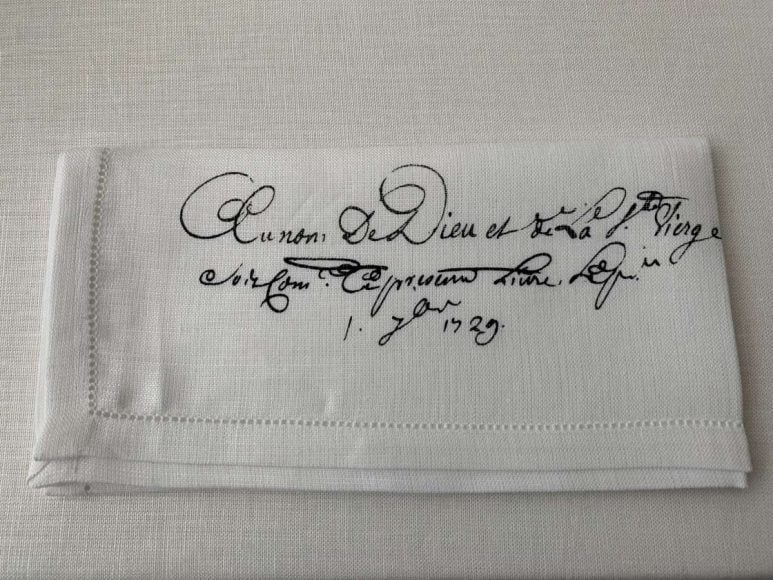 Au nom De Dieu et de La Ste Vierge
Soit Com. Ce present Livre. Le pr.
1. Jer 1729.